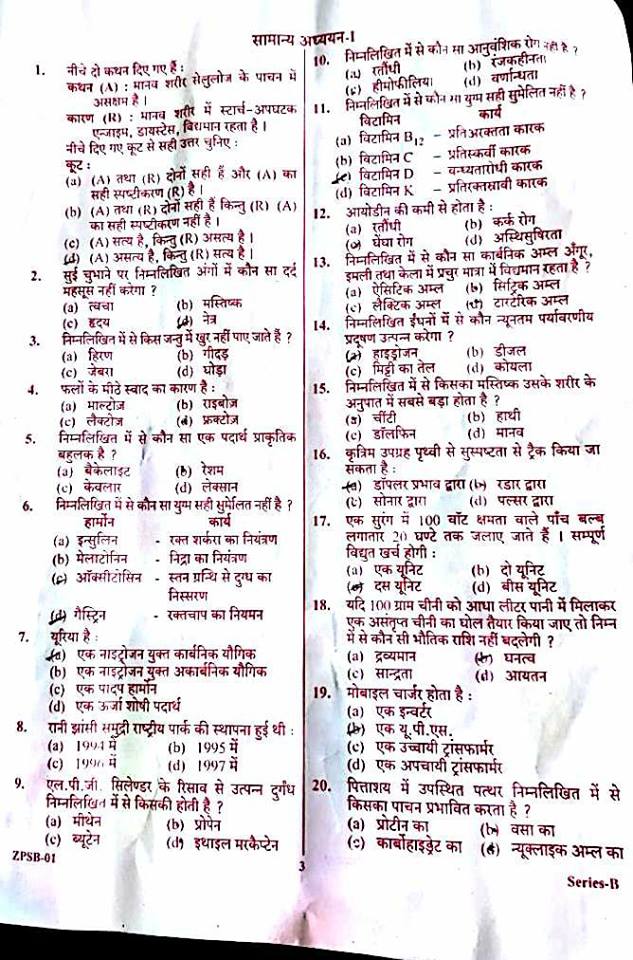 सामान्य अध्ययन-I
1. नीचे दो कथन दिए गए हैं :
कथन (A) : मानव शरीर सेलुलोज के पाचन में
असक्षम है ।
कारण (R) : मानव शरीर में स्टार्च-अपघटक
एन्जाइम, डायस्टेस, विद्यमान रहता है ।
नीचे दिए गए कूट से सही उत्तर चुनिए :
कूट :
(a) (A) तथा (R) दोनों सही हैं और (A) का
सही स्पष्टीकरण (R) है ।
(b) (A) तथा (R) दोनों सही हैं किन्तु (R) (A)
का सही स्पष्टीकरण नहीं है ।
(c) (A) सत्य है, किन्तु (R) असत्य है ।
(d) (A) असत्य है, किन्तु (R) सत्य है ।
2. सुई चुभाने पर निम्नलिखित अंगों में कौन सा दर्द
महसूस नहीं करेगा ?
(a) त्वचा (b) मस्तिष्क
(c) हृदय (d) नेत्र
3. निम्नलिखित में से किस जन्तु में खुर नहीं पाए जाते हैं ?
(a) हिरण (b) गीदड़
(c) जेबरा (d) घोड़ा
4. फलों के मीठे स्वाद का कारण है :
(a) माल्टोज (b) राइबोज
(c) लैक्टोज (d) फ्रक्टोज
5. निम्नलिखित में से कौन सा एक पदार्थ प्राकृतिक
बहुलक है ?
(a) बैकेलाइट (b) रेशम
(c) केवलार (d) लेक्सान
6. निम्नलिखित में से कौन सा युग्म सही सुमेलित नहीं है ?
हार्मोन कार्य
(a) इन्सुलिन - रक्त शर्करा का नियंत्रण
(b) मेलाटोनिन - निद्रा का नियंत्रण
(c) ऑक्सीटोसिन - स्तन ग्रन्थि से दुग्ध का
निस्सरण
(d) गैस्ट्रिन - रक्तचाप का नियमन
7. यूरिया है :
(a) एक नाइट्रोजन युक्त कार्बनिक यौगिक
(b) एक नाइट्रोजन युक्त अकार्बनिक यौगिक
(c) एक पादप हार्मोन
(d) एक ऊर्जा शोषी पदार्थ
8. रानी झांसी समुद्री राष्ट्रीय पार्क की स्थापना हुई थी :
(a) 1994 में (b) 1995 में
(c) 1996 में (d) 1997 में
9. एल.पी.जी. सिलेण्डर के रिसाव से उत्पन्न दुर्गंध
निम्नलिखित में से किसकी होती है ?
(a) मीथेन (b) प्रोपेन
(c) ब्यूटेन (d) इथाइल मरकैप्टेन
10. निम्नलिखित में से कौन सा आनुवंशिक रोग नहीं है ?
(a) रतौंधी (b) रंजकहीनता
(c) हीमोफीलिया (d) वर्णान्धता
11. निम्नलिखित में से कौन सा युग्म सही सुमेलित नहीं है ?
विटामिन कार्य
(a) विटामिन B12 - प्रतिअरक्तता कारक
(b) विटामिन C - प्रतिस्कर्वी कारक
(c) विटामिन D - वन्ध्यतारोधी कारक
(d) विटामिन K - प्रतिरक्तस्रावी कारक
12. आयोडीन की कमी से होता है :
(a) रतौंधी (b) कर्क रोग
(c) घेंघा रोग (d) अस्थिसुषिरता
13. निम्नलिखित में से कौन सा कार्बनिक अम्ल अंगूर,
इमली तथा केला में प्रचुर मात्रा में विद्यमान रहता है ?
(a) ऐसिटिक अम्ल (b) सिट्रिक अम्ल
(c) लैक्टिक अम्ल (d) टार्टरिक अम्ल
14. निम्नलिखित ईंधनों में से कौन न्यूनतम पर्यावरणीय
प्रदूषण उत्पन्न करेगा ?
(a) हाइड्रोजन (b) डीजल
(c) मिट्टी का तेल (d) कोयला
15. निम्नलिखित में से किसका मस्तिष्क उसके शरीर के
अनुपात में सबसे बड़ा होता है ?
(a) चींटी (b) हाथी
(c) डॉलफिन (d) मानव
16. कृत्रिम उपग्रह पृथ्वी से सुस्पष्टता से ट्रैक किया जा
सकता है :
(a) डॉपलर प्रभाव द्वारा (b) रडार द्वारा
(c) सोनार द्वारा (d) पल्सर द्वारा
17. एक सुरंग में 100 वॉट क्षमता वाले पाँच बल्ब
लगातार 20 घण्टे तक जलाए जाते हैं । सम्पूर्ण
विद्युत खर्च होगी :
(a) एक यूनिट (b) दो यूनिट
(c) दस यूनिट (d) बीस यूनिट
18. यदि 100 ग्राम चीनी को आधा लीटर पानी में मिलाकर
एक असंतृप्त चीनी का घोल तैयार किया जाए तो निम्न
में से कौन सी भौतिक राशि नहीं बदलेगी ?
(a) द्रव्यमान (b) घनत्व
(c) सान्द्रता (d) आयतन
19. मोबाइल चार्जर होता है :
(a) एक इन्वर्टर
(b) एक यू.पी.एस.
(c) एक उच्चायी ट्रांसफार्मर
(d) एक अपचायी ट्रांसफार्मर
20. पित्ताशय में उपस्थित पत्थर निम्नलिखित में से
किसका पाचन प्रभावित करता है ?
(a) प्रोटीन का (b) वसा का
(c) कार्बोहाइड्रेट का (d) न्यूक्लाइक अम्ल का
ZPSB-01
3
Series-B